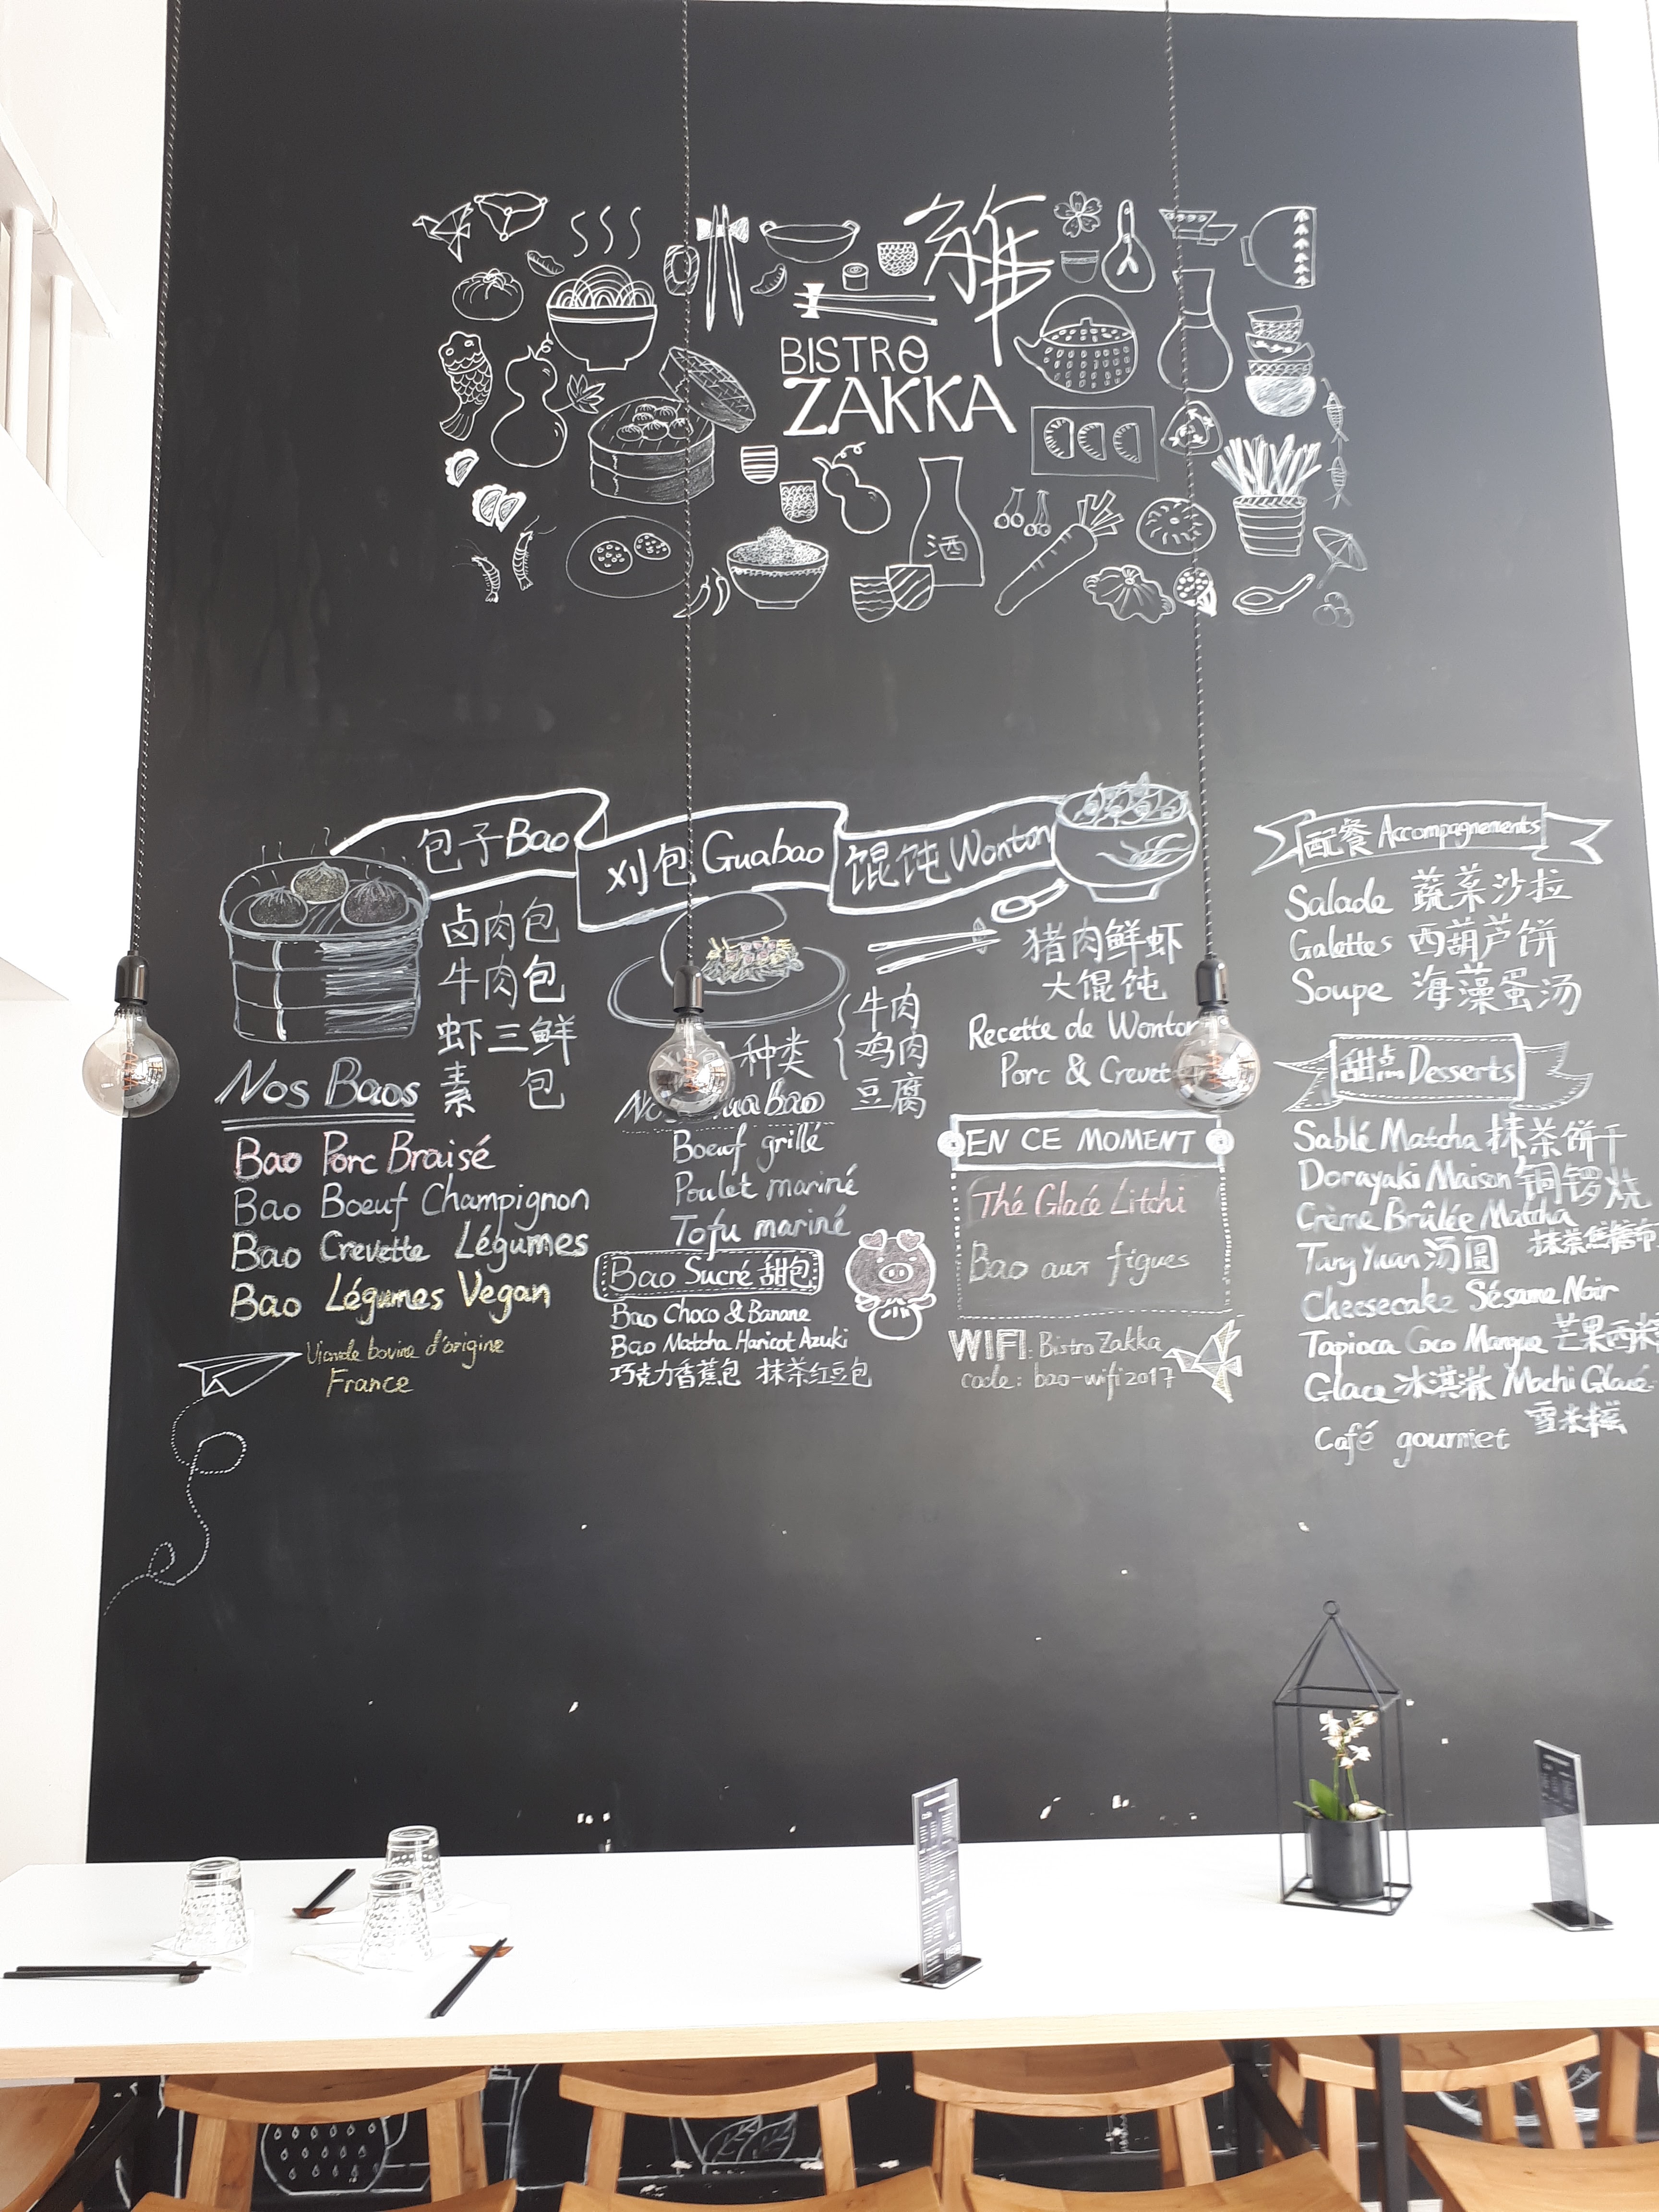 雑
BISTRO
ZAKKA
酒
包子Bao
卤肉包
牛肉包
虾三鲜
素 包
Nos Baos
Bao Porc Braisé
Bao Boeuf Champignon
Bao Crevette Légumes
Bao Légumes Vegan
Viande bovine d'origine
France
刈包 Guabao
种类
牛肉
鸡肉
豆腐
Bao
Boeuf grillé
Poulet mariné
Tofu mariné
Bao Sucré 甜包
Bao Choco & Banane
Bao Matcha Haricot Azuki
巧克力香蕉包 抹茶红豆包
馄饨 Wonton
猪肉鲜虾
大馄饨
Recette de Wonton
Porc &
EN CE MOMENT
Thé Glacé Litchi
Bao aux figues
WIFI: Bistro Zakka
code: bao-wifi2017
配餐 Accompagnements
Salade 蔬菜沙拉
Galettes 西葫芦饼
Soupe 海藻蛋汤
甜点 Desserts
Sablé Matcha 抹茶饼干
Dorayaki Maison 铜锣烧
Crème Brûlée Matcha
抹茶焦糖布
Tang Yuan 汤圆
Cheesecake Sésame Noir
Tapioca Coco Mangue 芒果西米
Glace 冰淇淋 Mochi Glacé
雪米糍
Café gourmet